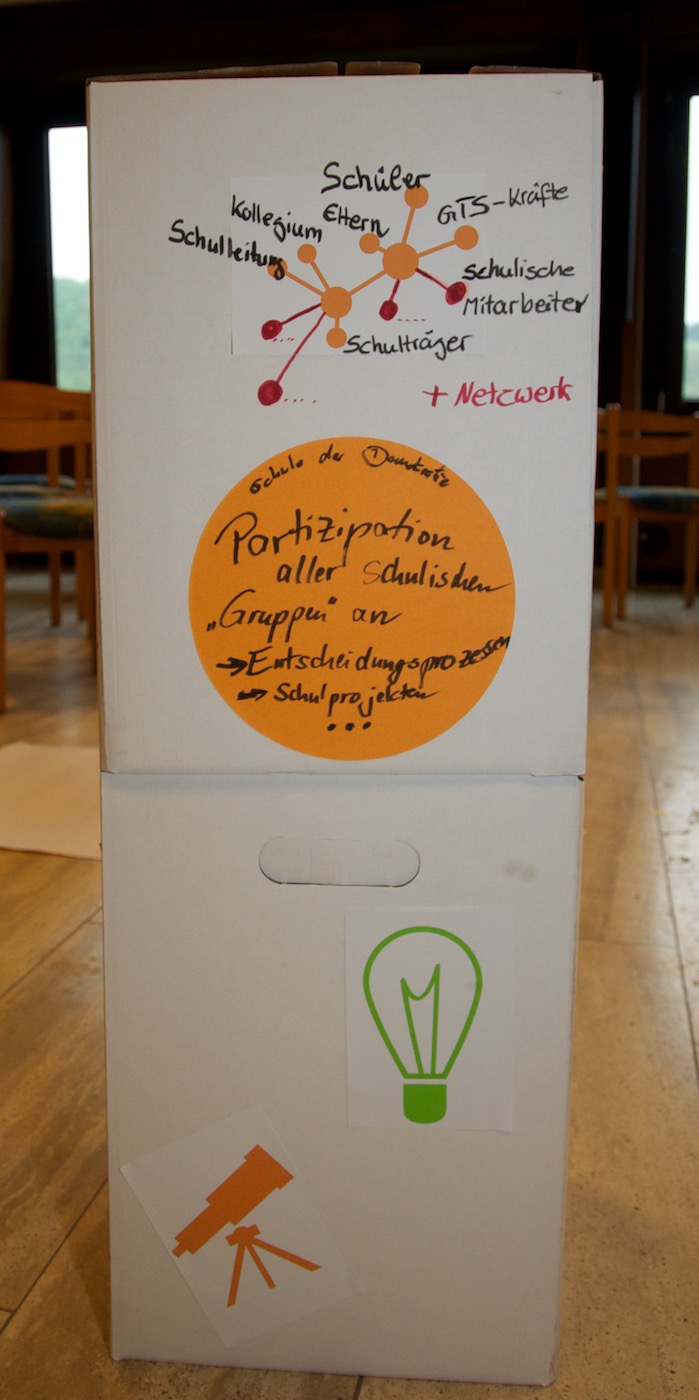 Schüler
Kollegium
Eltern
GTS-Kräfte
Schulleitung
schulische
Mitarbeiter
....
....
Schulträger
....
+ Netzwerk
Schule der Demokratie
Partizipation
aller Schulischen
„Gruppen" an
→ Entscheidungsprozessen
→ Schulprojekten
...